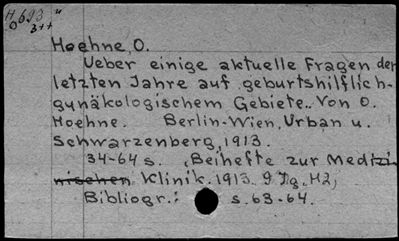 H623"
O 3++
Hoehne, O.
Ueber einige aktuelle Fragen der
letzten Jahre auf geburtshilflich-
gynäkologischem Gebiete.. Von O.
Hoehne. Berlin-Wien, Urban u.
Schwarzenberg, 1913.
34-64 s. (Beihefte zur Medizi-
nischen Klinik. 1913. 9 Jg. H2)
Bibliogr.: s. 63-64.